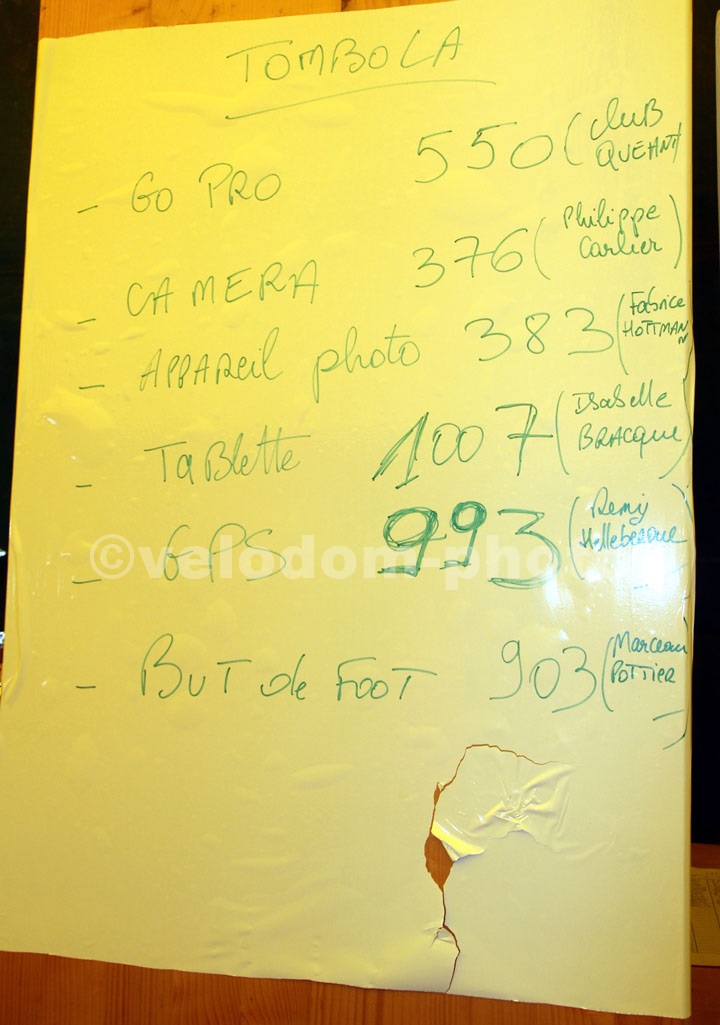 TOMBOLA
- GO PRO 550 (Club
QUEANT)
- CAMERA 376 (Philippe
Carlier)
- APPAReil photo 383 (Fabrice
HOTTMANN
- TaBlette 1007 (Isabelle
BRACque)
- GPS 993 (Remy
©velodom-pho
- BUT de FOOT 903 (Marceau
POTTier